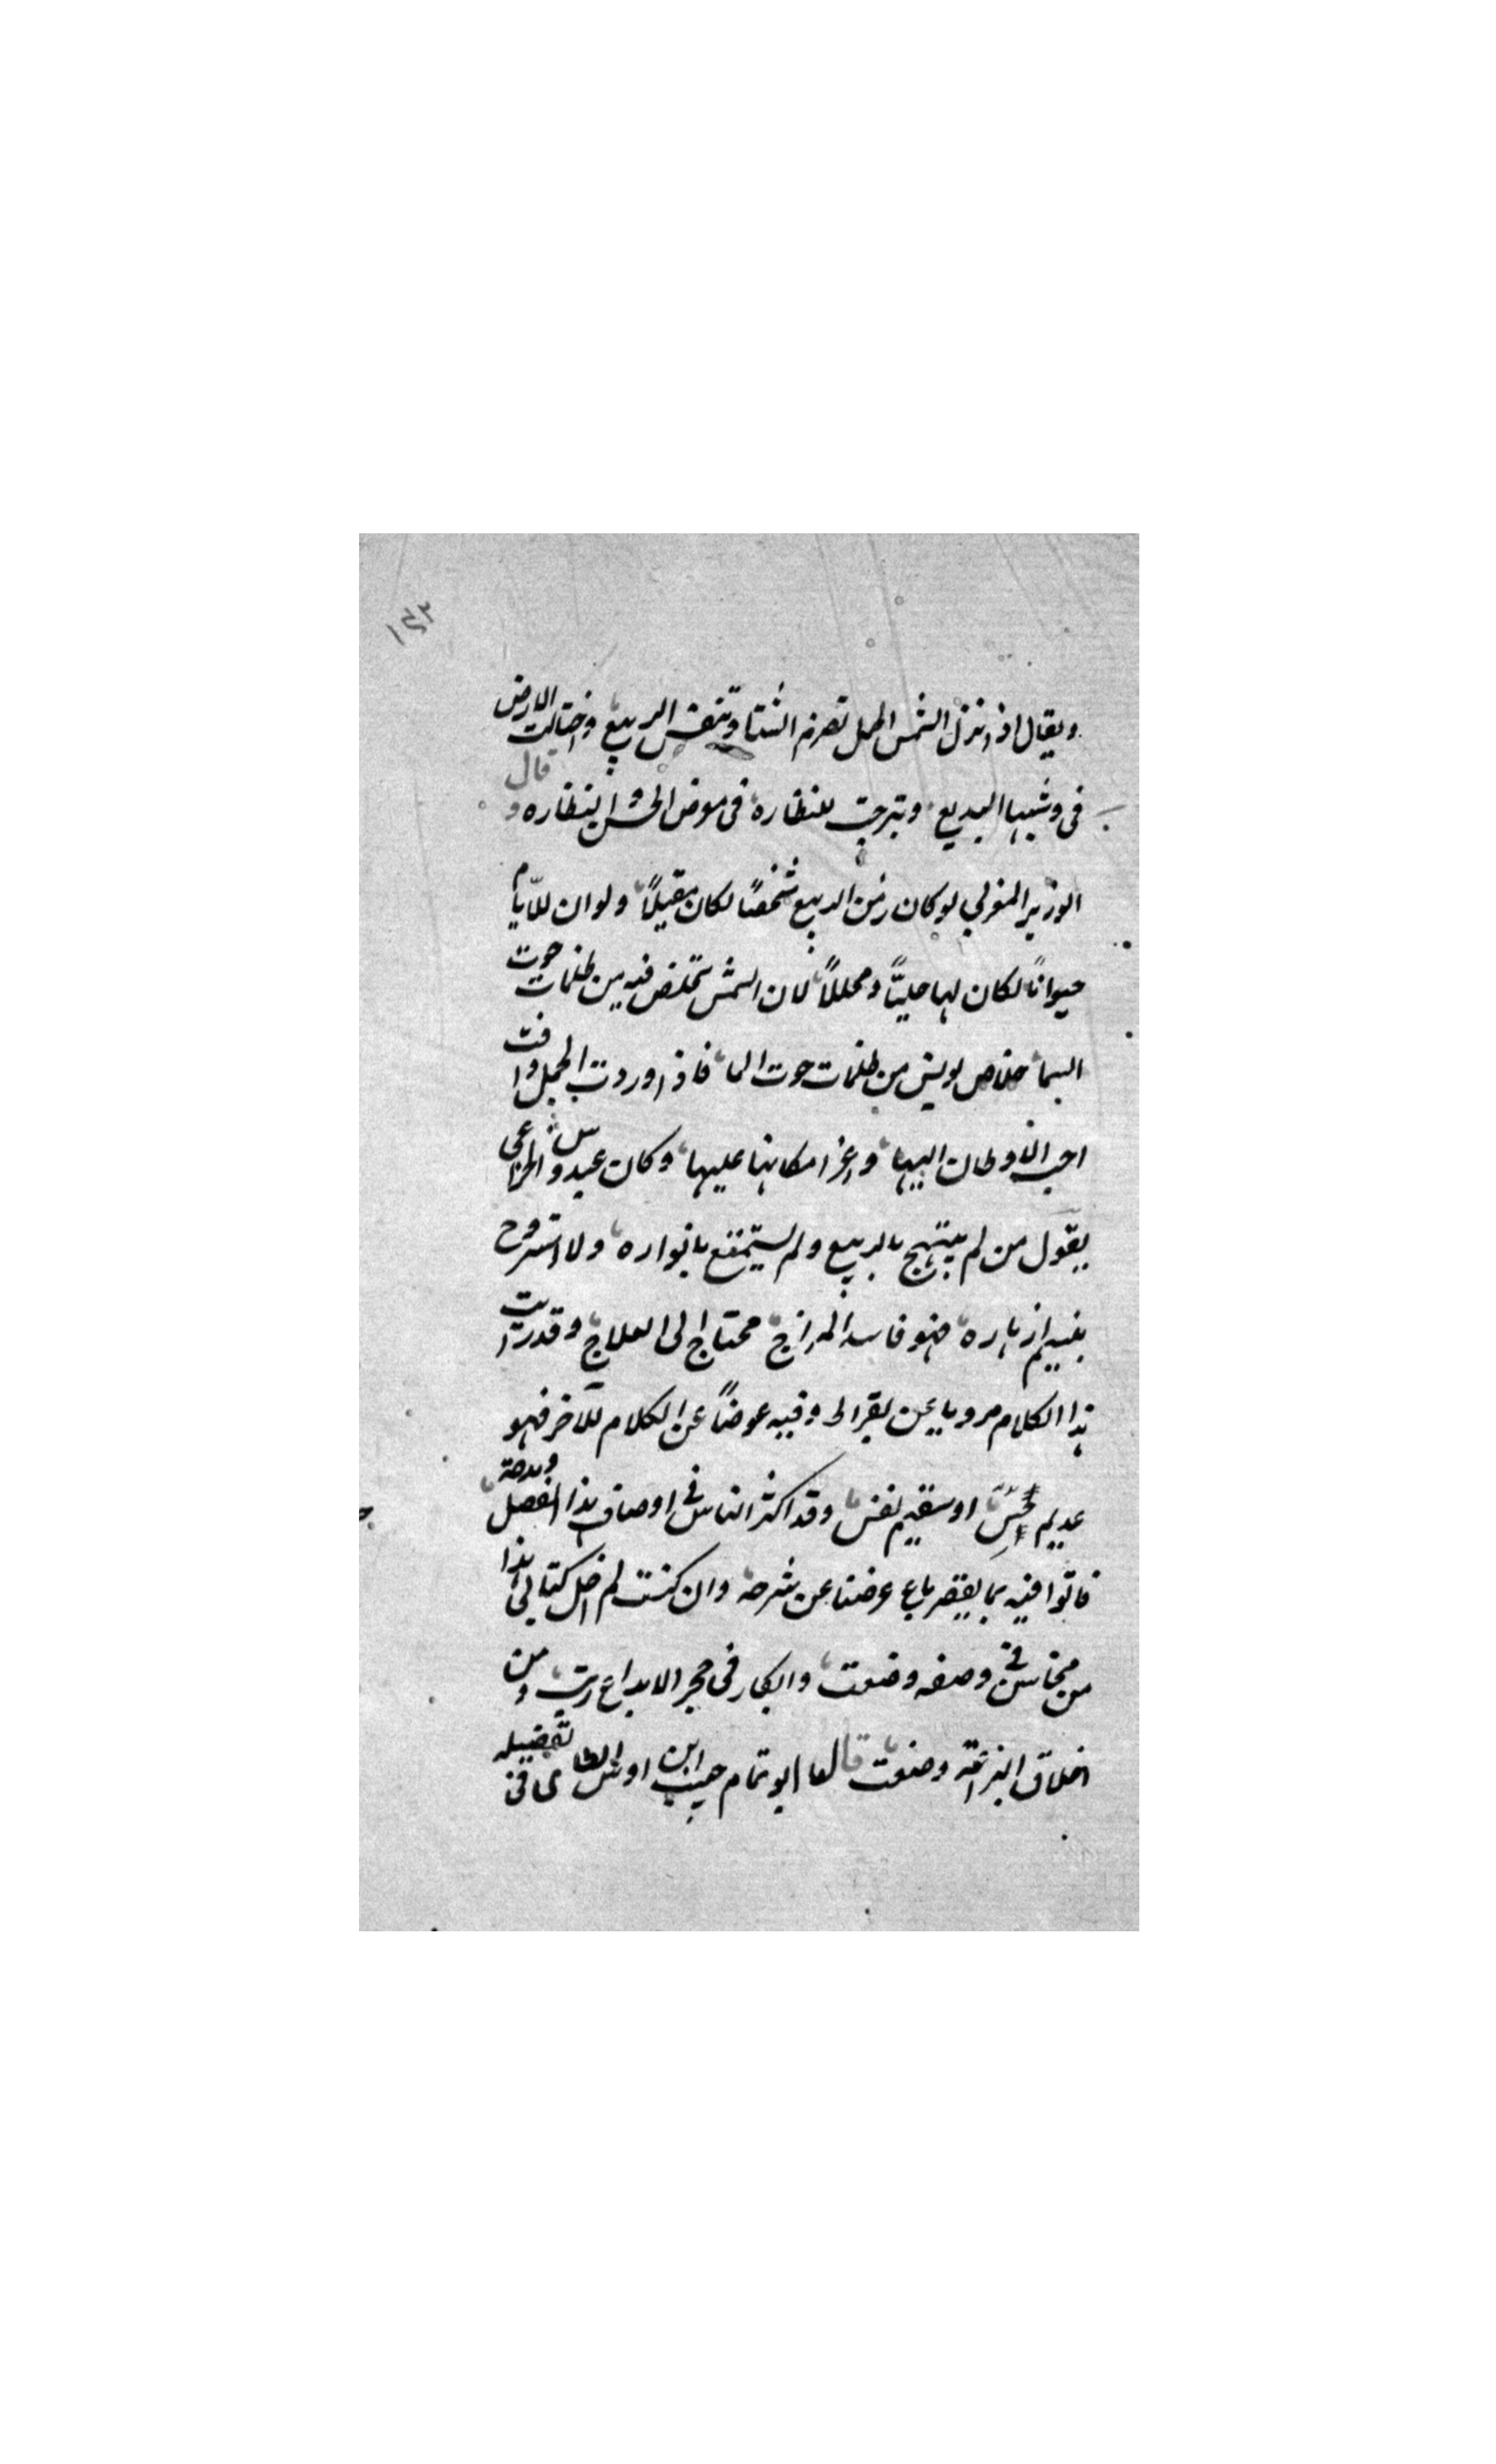 ١٤٢
ويقال اذا نزل الشمس الحمل تصرم الشتا وتنفس الربيع واختالت الارض
فى وشيها البديع وتبرجت للنظاره فى معرض الحسن والنضاره وقال
الوزير المغربي لو كان زمن الربيع شخصًا لكان مقبلًا ولو ان للأيام
حيوانًا لكان لها حليًّا ومحللًا لان الشمس تخلص فيه من ظلمات حوت
السما خلاص يونس من ظلمات حوت الما فاذا وردت الحمل وافت
احب الاوطان اليها واعز امكانها عليها وكان عبدوس الخزاعى
يقول من لم يبتهج بالربيع ولم يستمتع بانواره ولا استروح
بنسيم ازهاره فهو فاسد المزاج محتاج الى العلاج وقد رايت
هذا الكلام مرويا عن بقراط وفيه عوضًا عن الكلام الآخر فهو
عديم حس او سقيم نفس وقد اكثر الناس فى اوصاف هذا الفصل ومدحه
فاتوا فيه بما يقصر باع عرضنا عن شرحه وان كنت لم اخل كتابى هذا
من محاسن فى وصفه وضعت وابكار فى حجر الابداع ربت ومن
اخلاق البراعة وضعت قال ابو تمام حبيب ابن اوس الطاى فى تفضيله